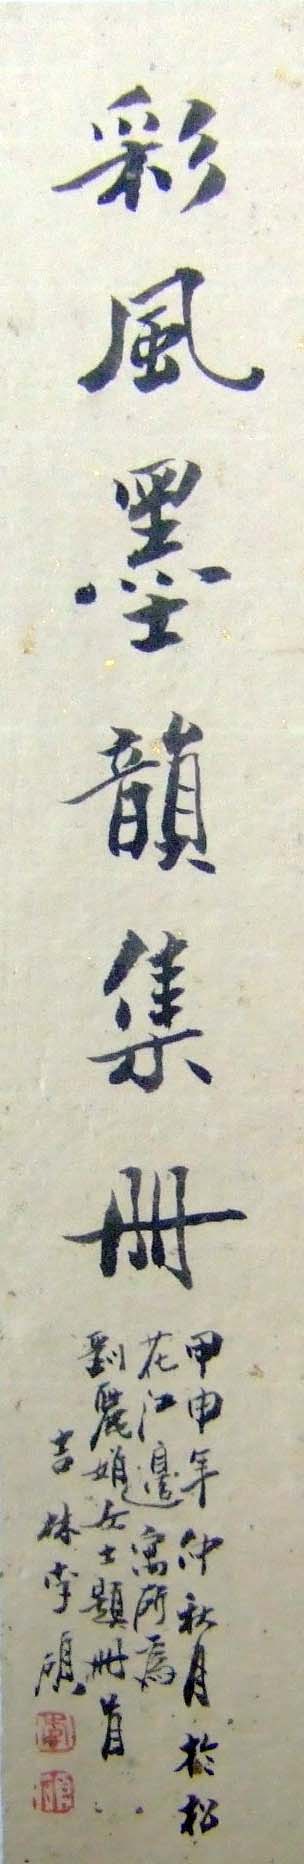 彩風墨韻集冊
甲申年仲秋月於松
花江邊寓所為
劉麗娟女士題冊首
吉林李碩